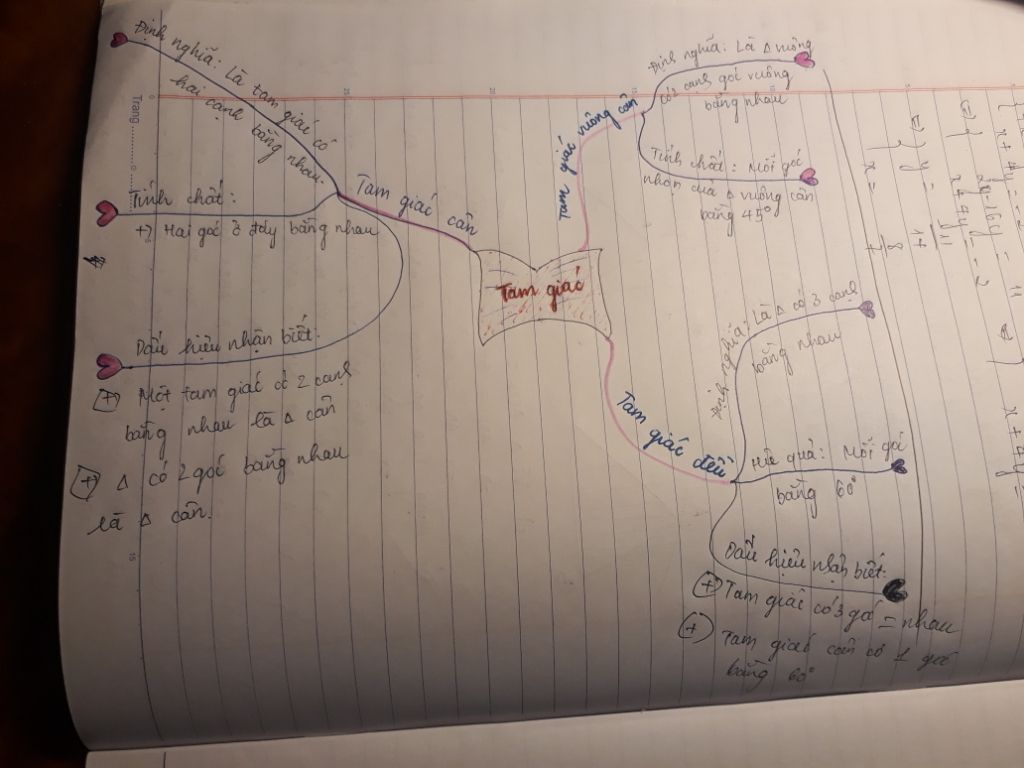 Tam giác
Tam giác cân
Định nghĩa: Là tam giác có
hai cạnh bằng nhau.
Tính chất:
+) Hai góc 3 đáy bằng nhau
Dấu hiệu nhận biết:
+ Một tam giác có 2 cạnh
bằng nhau là Δ cân
+ Δ có 2 góc bằng nhau
là Δ cân.
Tam giác vuông cân
Định nghĩa: Là Δ vuông
có 2 cạnh góc vuông
bằng nhau
Tính chất: Mỗi góc
nhọn của Δ vuông cân
bằng 45°
Tam giác đều
Định nghĩa: Là Δ có 3 cạnh
bằng nhau
Hệ quả: Mỗi góc
bằng 60°
Dấu hiệu nhận biết:
+ Tam giác có 3 góc = nhau
+ Tam giác cân có 1 góc
bằng 60°
Trang